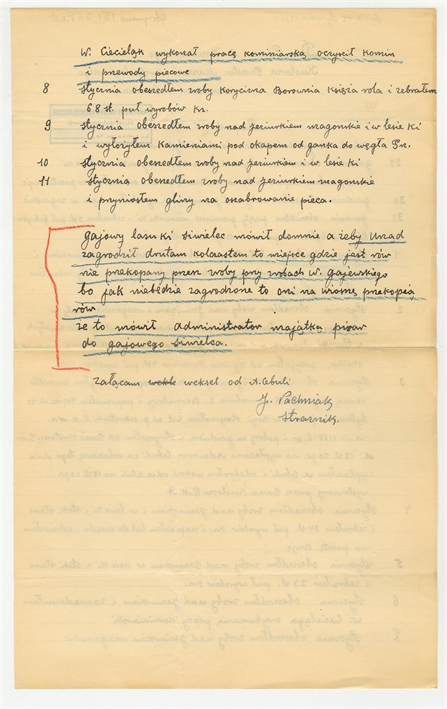 W. Cieciełąk wykonał pracę kominiarską oczyścił komin
i przewody piecowe
8 stycznia obeszedłem wody Koryczna Borownia Księża rola i zebrałem
68 st. put wyrobów kr.
9 stycznia obeszedłem wody nad jeziurkiem magomskie i w lesie Ki
i wyłożyłem Kamieniami pod okapem od ganka do węgła Pn.
10 stycznia obeszedłem wody nad jeziurkiem i w lesie Ki
11 stycznia obeszedłem wody nad jeziurkiem magomskie
i przyniosłem gliny na osabrowanie pieca.
gajowy lasu Ki Siwielec mówił do mnie a żeby Urząd
zagrodził drutam kolczastem to miejsce gdzie jest rów
nie przekopany przez wody przy wodach W. gajewskiego
bo jak niebędzie zagrodzone to oni na wiosnę przekopią
rów
że to mówił administrator majątku pisar
do gajowego Siwielca.
Załączam weksel od A. Cebuli
J. Pachniak
Strażnik.